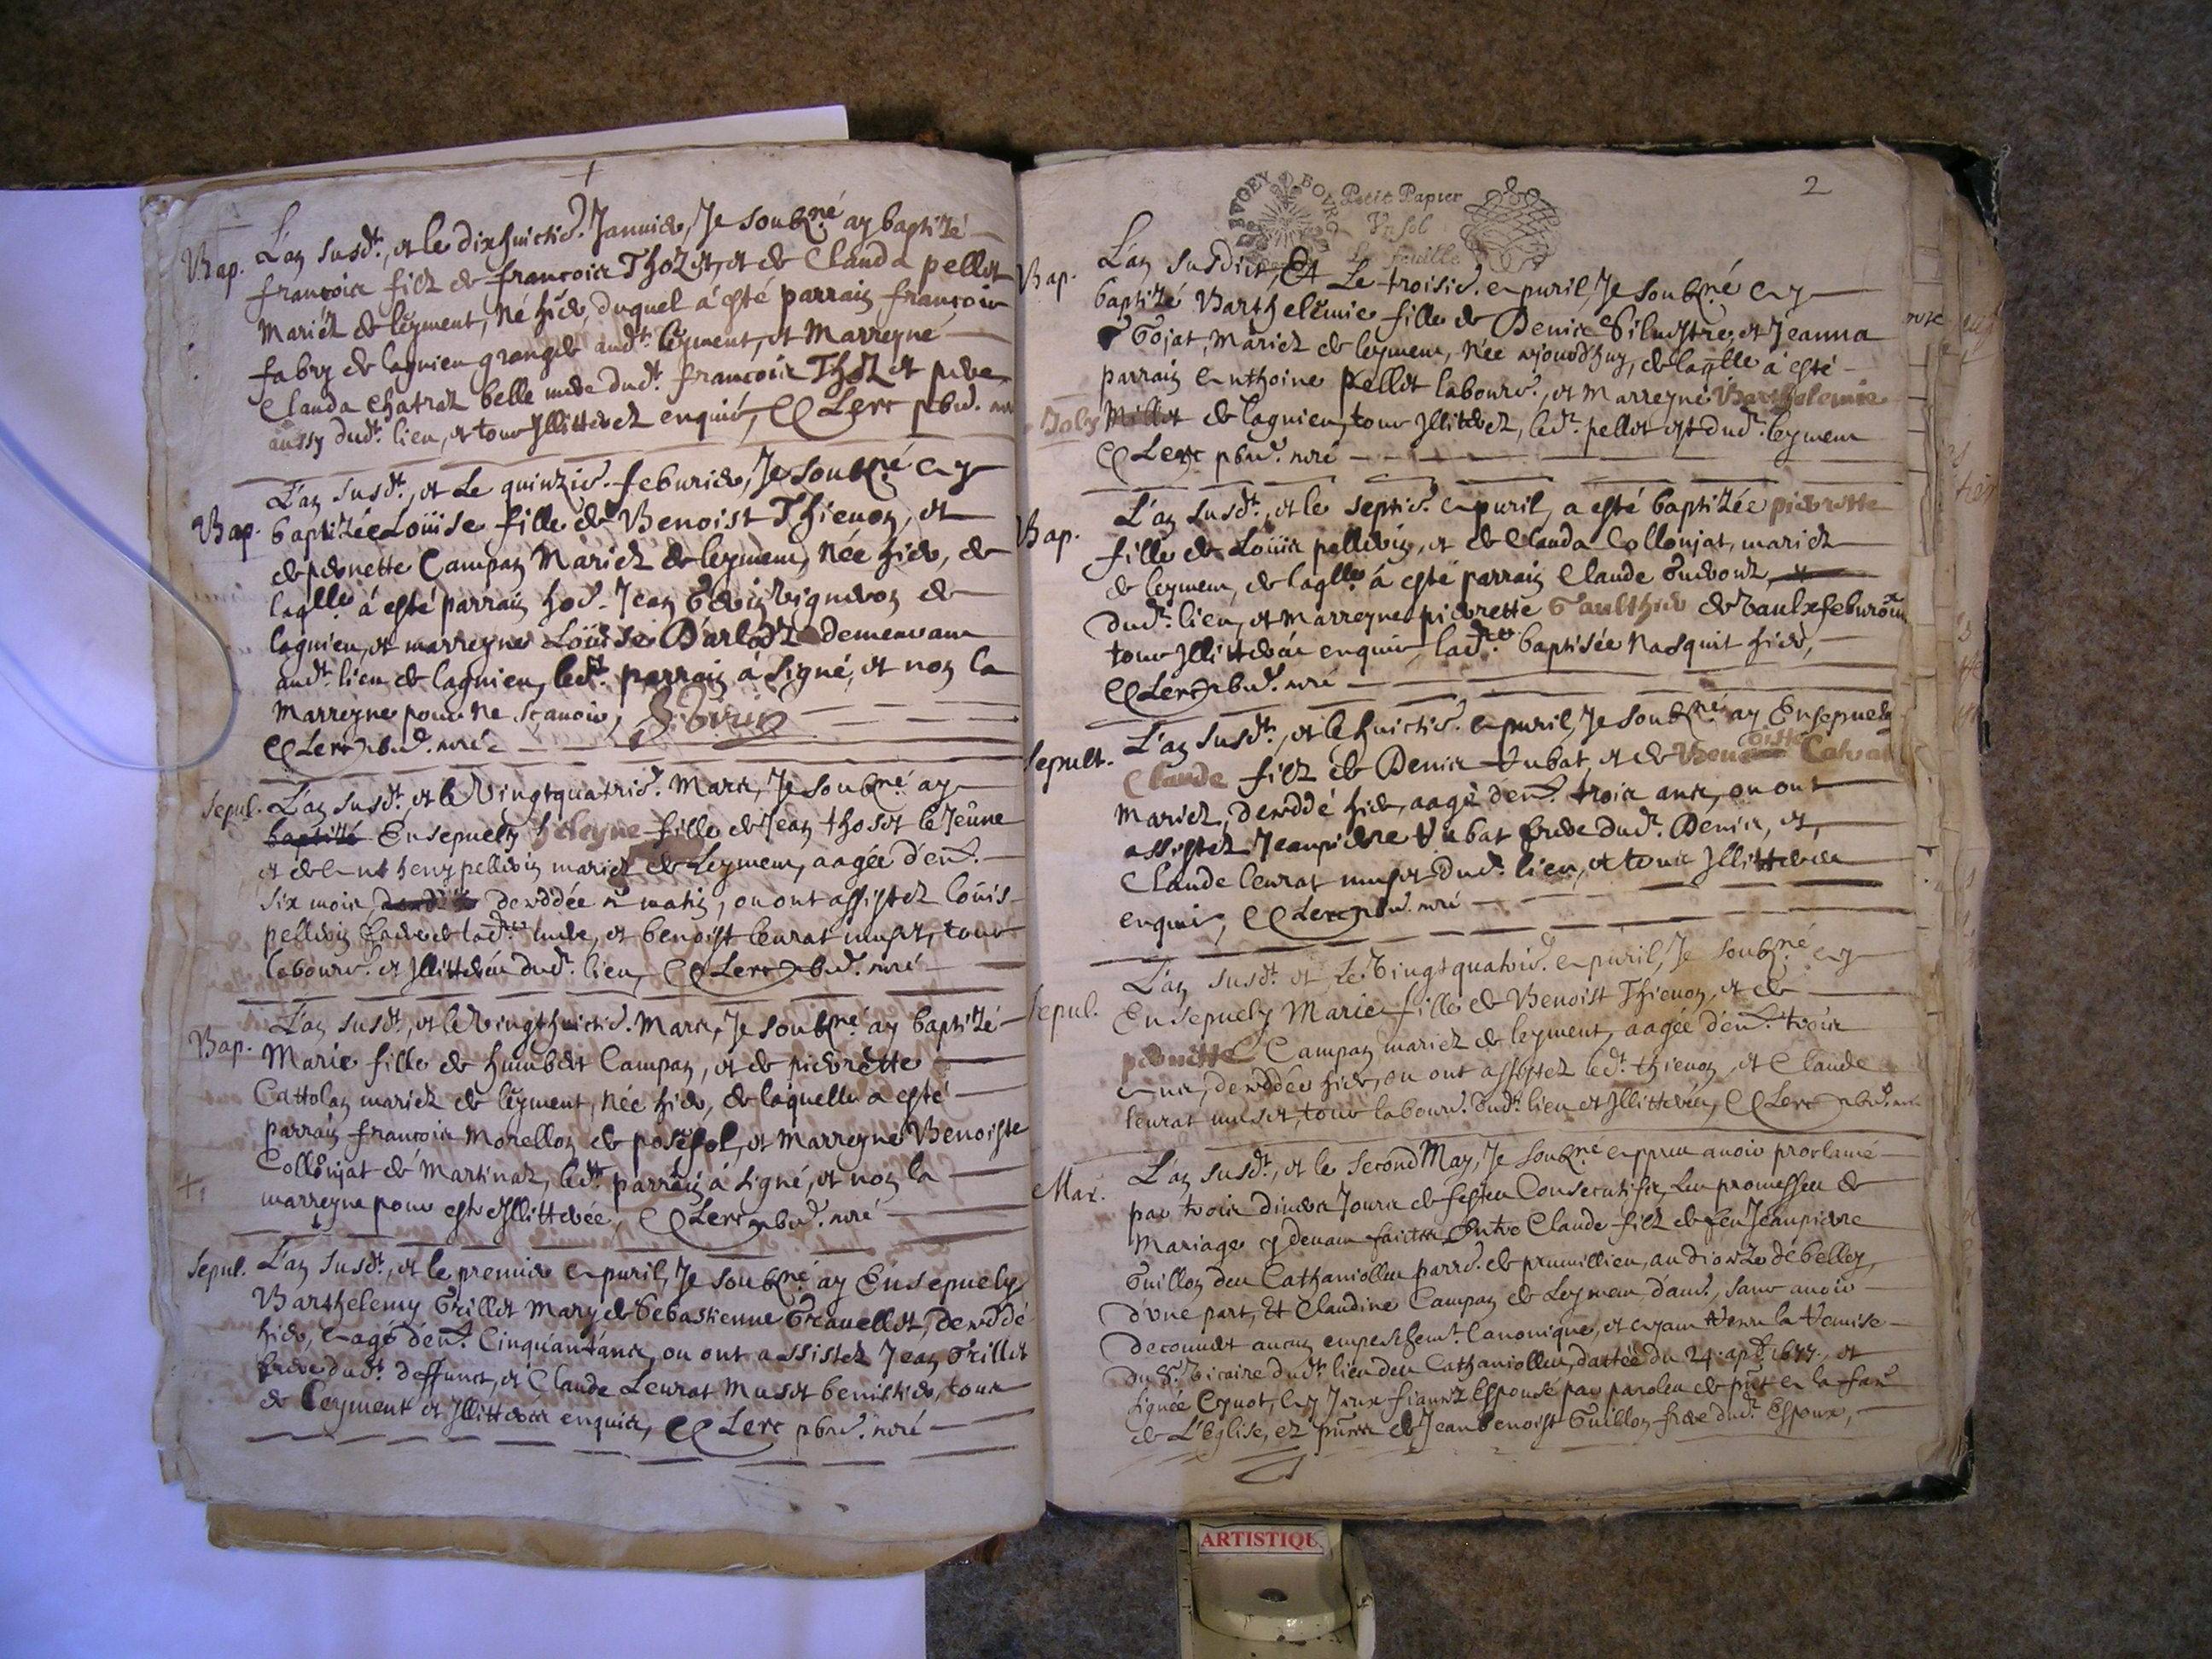 Bap. L'an susdt, et le dixhuictie. Januier, Je soubzné ay baptizé
francois filz de francois Thozet, et de Clauda pellet
Mariéz de leyment, né hier, duquel à esté parrain francois
fabry de lagnieu granger audt. leyment, et Marreyne
Clauda Chatraz belle mere dudt. francois Thozet pere
aussy dudt. lieu, et tous Jllitterez enquis, CLerc pbre.
L'an susdt, et Le quinzie. feburier, Je soubzné ay
Bap. baptizée Loüise fille de Benoist Thienon, et
de pernette Campan Mariéz de leyment, Née hier, de
laqlle à esté parrain hoe. Jean Girin vigneron de
lagnieu, et marreyne Loüise Darloz demeurant
audt. lieu de lagnieu, ledt. parrain à signé, et non la
Marreyne pour ne sçauoir, J. Girin
CLerc pbre. curé
Sepul. L'an susdt. et le Vingtquatrie. Mars, Je soubzné ay
baptizé Ensepuely heleyne fille de Jean thoset le Jeune
et de Antheny pellerin mariez de Leyment, aagée d'enu.
six mois, decedée ce matin, ou ont assistez loüis
pellerin frere de lade. mere, et benoist leurat muset, tous
labours. et Jllitterés dudt. lieu, CLerc pbre. curé
L'an susdt, et le Vingthuictie. Mars, Je soubzné ay baptizé
Bap. Marie fille de humbert Campan, et de pierrette
Cattolan mariez de leyment, née hier, de laquelle a esté
parrain francois Morellon de posafol, et Marreyne Benoiste
Collonjat de Martinaz, ledt. parrain à signé, et non la
marreyne pour estre Jllitterée, CLerc pbre. curé
Sepul. L'an susdt, et le premier Apuril, Je soubzné ay Ensepuely
Barthelemy Grillet Mary de Sebastienne Grauellet, decedé
hier, aagé d'enu. Cinquant'ans, ou ont assistez Jean Grillet
frere dudt. deffunct, et Claude Leurat Muset benistier, tous
de Leyment et Jllitteres enquis, CLerc pbre. curé
2
BVGEY BOVRG
Petit Papier
Vn sol
La feuille
Bap. L'an susdict, Et Le troisie. Apuril, Je soubzné Ay
baptizé Barthelemie fille de Denis Siluestre, et Jeanna
Gojat, Mariez de leyment, née ajourdhuy, de laqlle à esté
parrain Anthoine pellet labour., et Marreyne Barthelemie
Joly Millet de lagnieu, tous Jllitterez, ledt. pellet est dudt. leyment
CLerc pbre. curé
Bap. L'an susdt, et le septie. Apuril, a esté baptizée pierrette
fille de Loüis pellerin, et de Clauda Collonjat, mariez
de leyment, de laqlle à esté parrain Claude
dudt. lieu, et Marreyne pierrette Gaulthier de
tous Jllitterés enquis, lade. baptisée Nasquit hier,
CLerc pbre. curé
Sepult. L'an susdt, et le huictie. Apuril, Je soubzné ay Ensepuely
Claude filz de Denis Vubat, et de Benoiste
Mariez, decedé hier, aagé d'enu. trois ans, ou ont
assistez Jeanpierre Vubat frere dudt. Denis, et
Claude leurat musset dudt. lieu, et tous Jllitterés
enquis, CLerc pbre. curé
L'an susdt. et Le Vingtquatrie. Apuril, Je soubzné Ay
Sepul. Ensepuely Marie fille de Benoist Thienon, et de
pernette Campan mariez de leyment, aagée d'enu. trois
ans, decedée hier, ou ont assistez ledt. thienon, et Claude
leurat muset, tous labours. dudt. lieu et Jllitterés, CLerc pbre.
Mar. L'an susdt, et le second May, Je soubzné Appres auoir proclamé
par trois diuers Jours de festes Consecutifs, Les promesses de
Mariage cy deuant faictes Entre Claude filz de feu Jeanpierre
Guillon des Cathaniolles parr. de prunillieu, au dioceze de belley,
d'vne part, Et Claudine Campan de Leyment d'autre, sans auoir
decouuert aucun empeschemt. Canonique, et ayant Veu la Remise
du Sr. Vicaire dudt. lieu des Cathaniolles, dattée du 24. apl. 1677, et
signée Cynot, les Jeunes fiancez Espousé par paroles de pnt en la face
de L'Eglise, ez pnces de Jean benoist Guillon frere dudt. Espoux,
ARTISTIQU